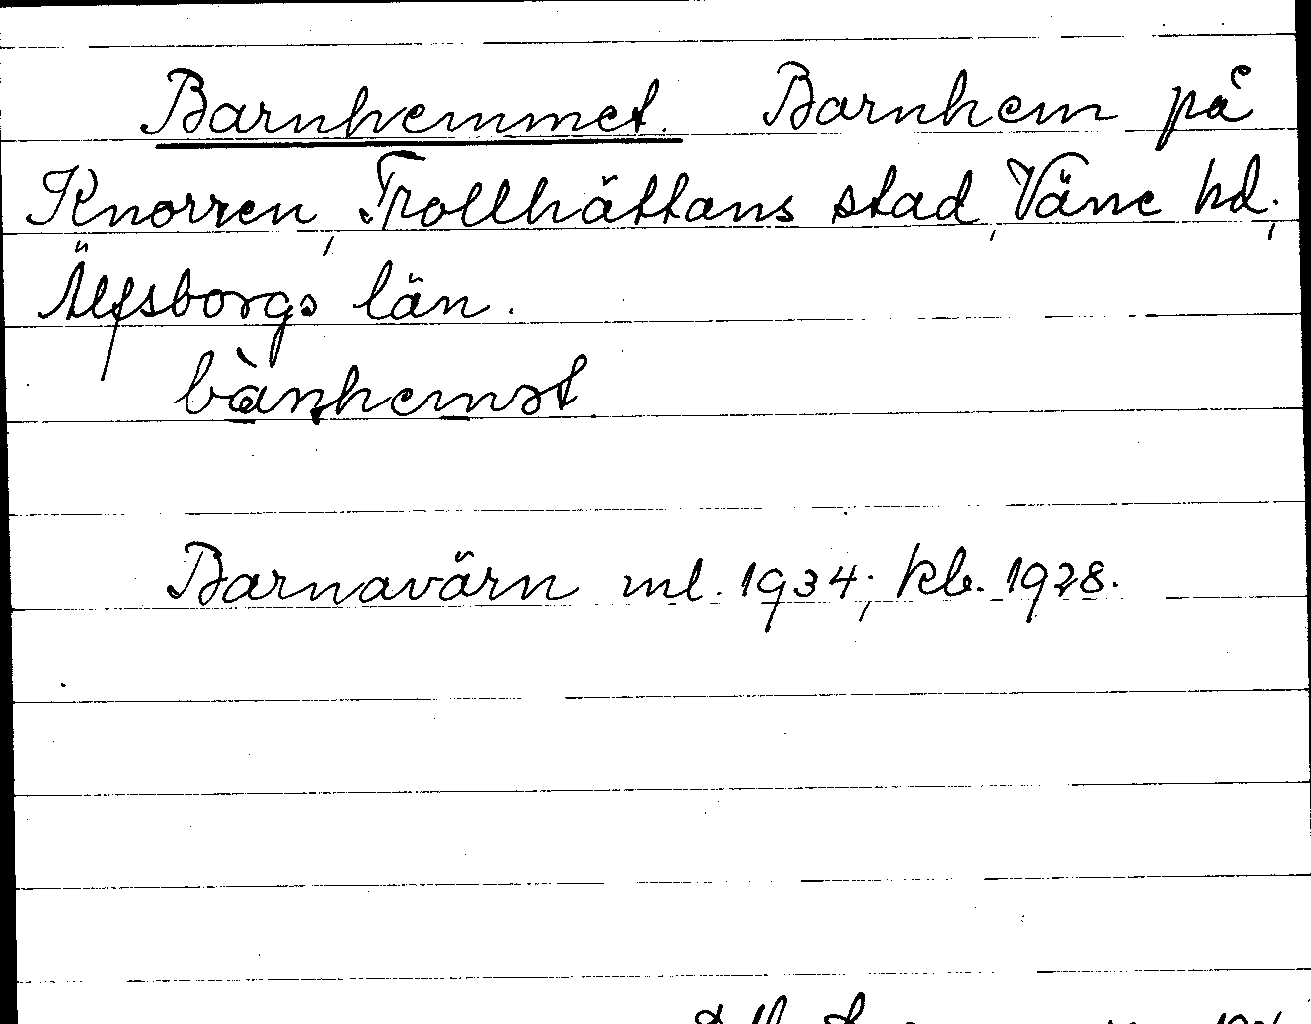 Barnhemmet. Barnhem på
Knorren, Trollhättans stad, Väne hd.,
Älfsborgs län.
bànhemət.
Barnavärn ml. 1934; kb. 1928.